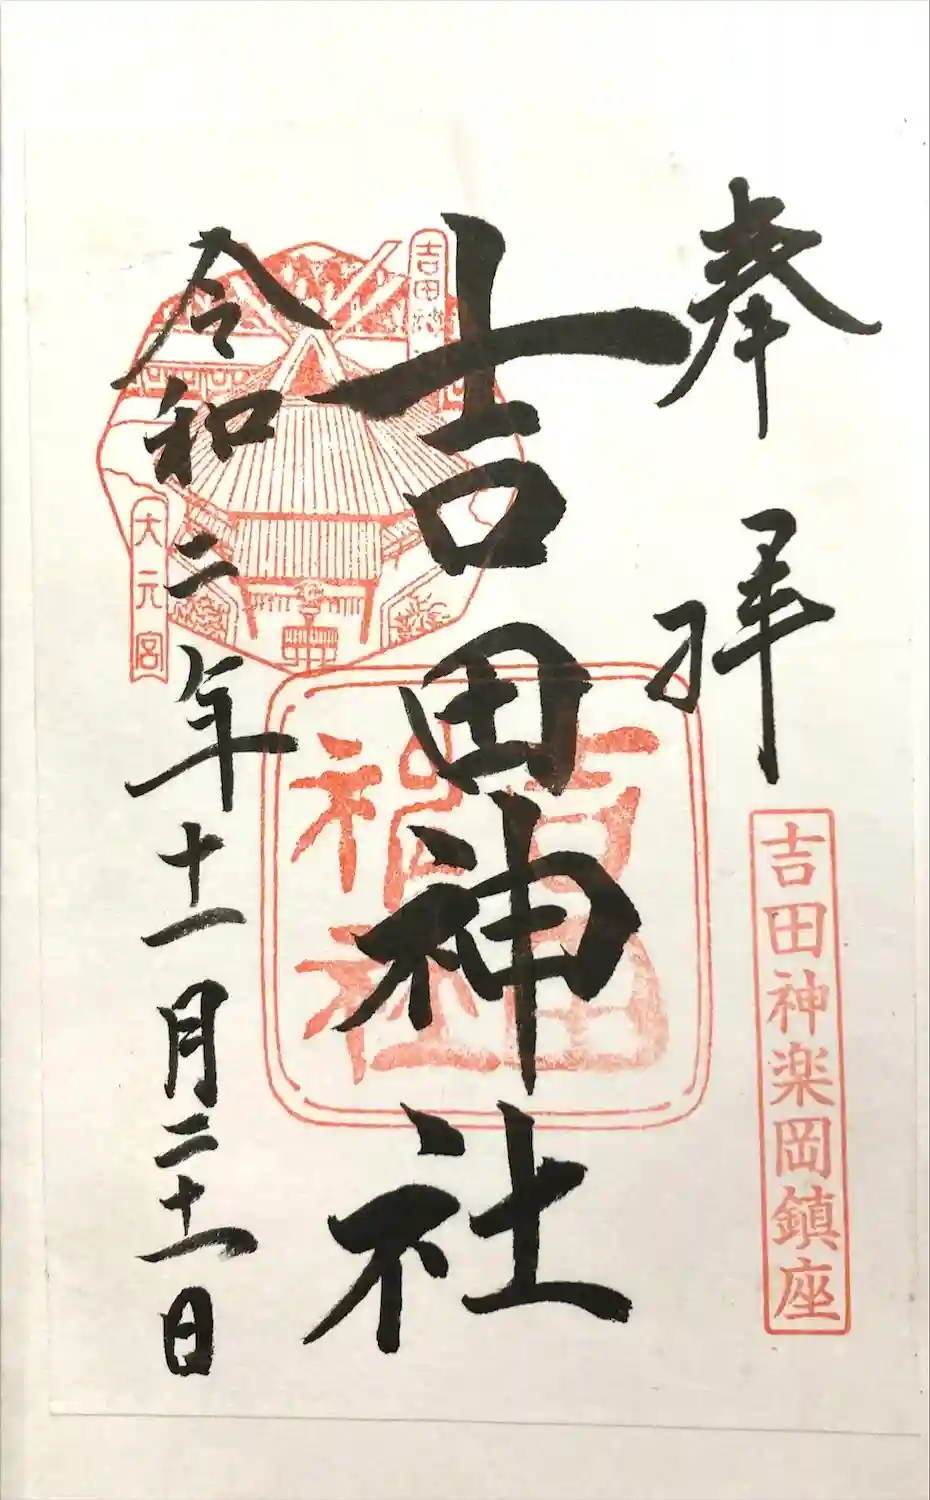 奉拝
吉田神楽岡鎮座
吉田神社
吉田神社
吉田神
令和二年十一月二十一日
大元宮